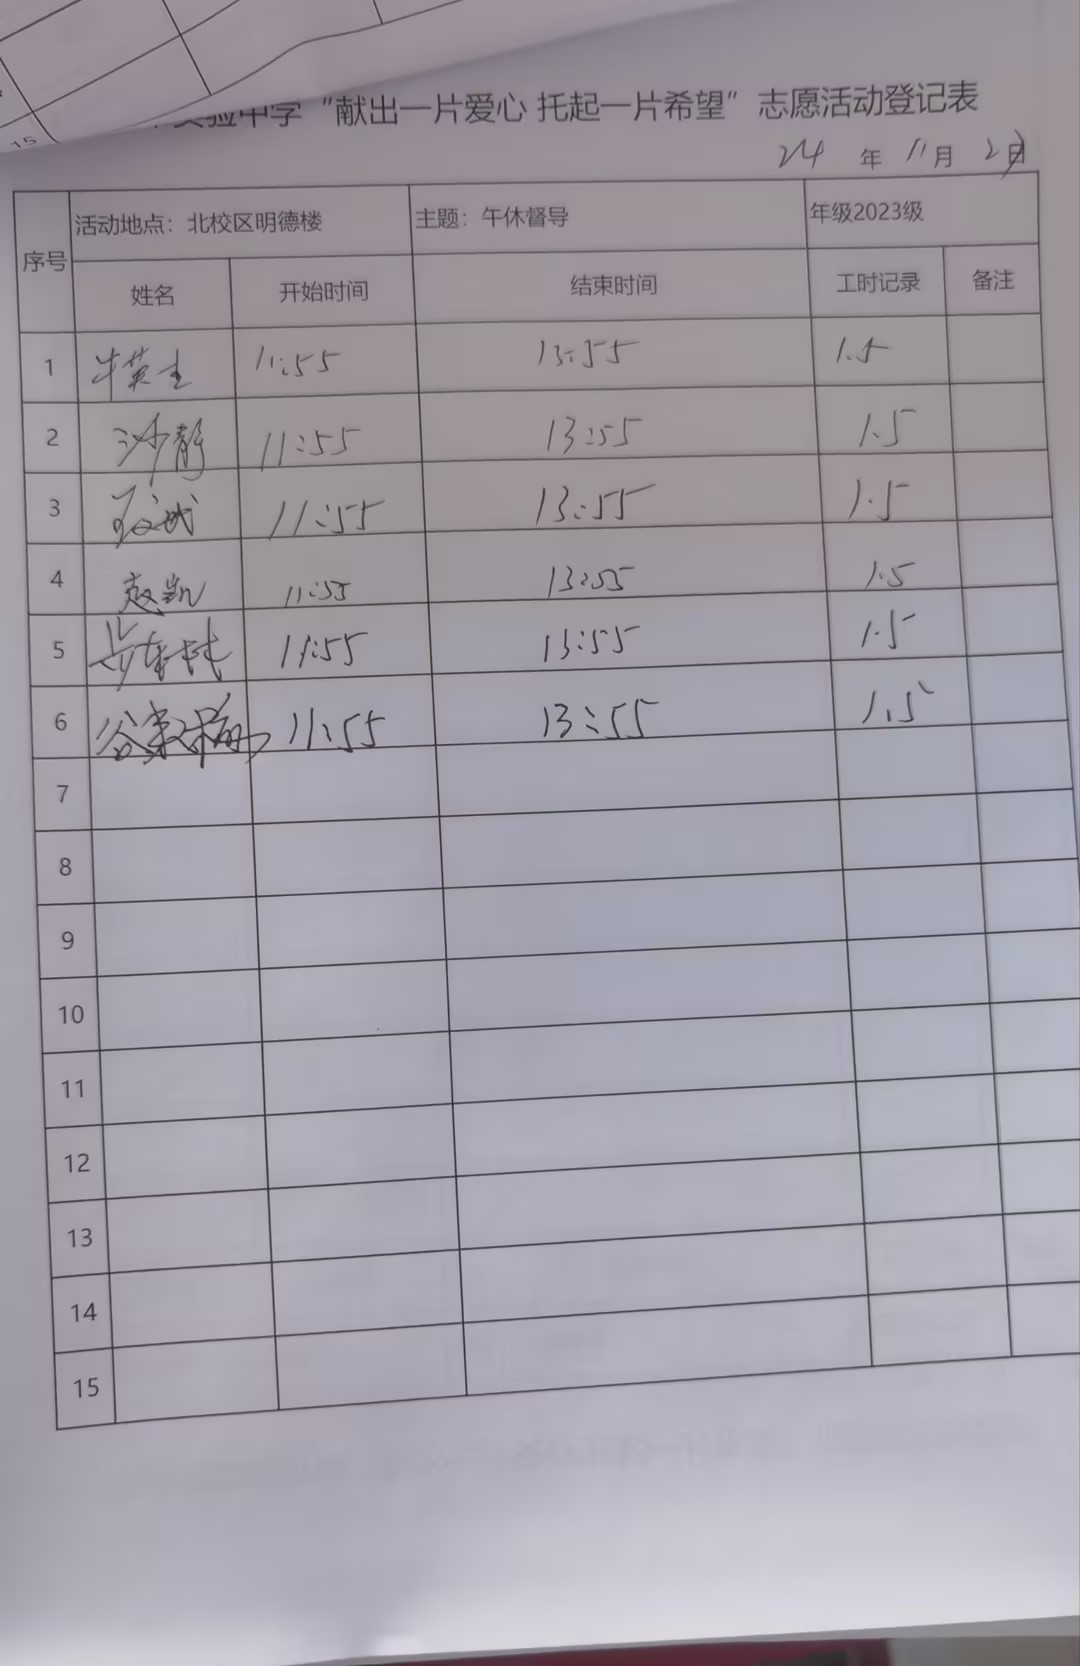 15
实验中学“献出一片爱心 托起一片希望”志愿活动登记表
24 年 11月 日
序号 活动地点：北校区明德楼 主题：午休督导 年级2023级
姓名 开始时间 结束时间 工时记录 备注
1 牛英 11:55 13:55 1.5
2 沙静 11:55 13:55 1.5
3 11:55 13:55 1.5
4 赵凯 11:55 13:55 1.5
5 11:55 13:55 1.5
6 谷 11:55 13:55 1.5
7
8
9
10
11
12
13
14
15